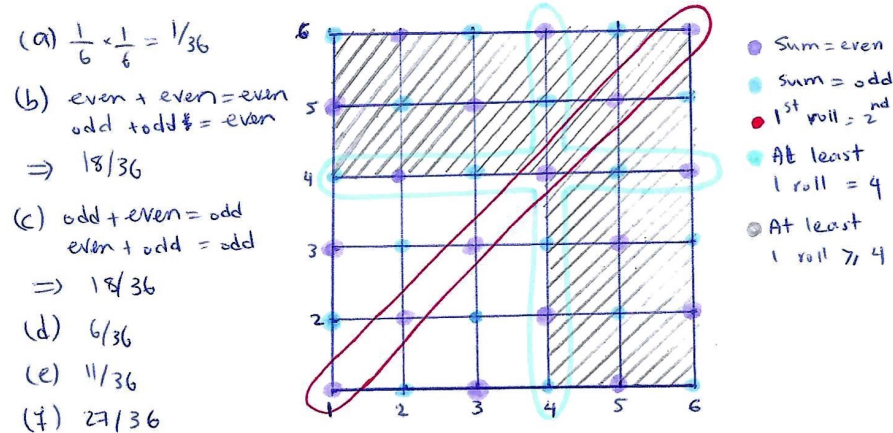 (a) 1/6 × 1/6 = 1/36
(b) even + even = even
odd + odd = even
⇒ 18/36
(c) odd + even = odd
even + odd = odd
⇒ 18/36
(d) 6/36
(e) 11/36
(f) 27/36
6
5
4
3
2
1 2 3 4 5 6
Sum = even
Sum = odd
1st roll = 2nd
At least
1 roll = 4
At least
1 roll ⩾ 4